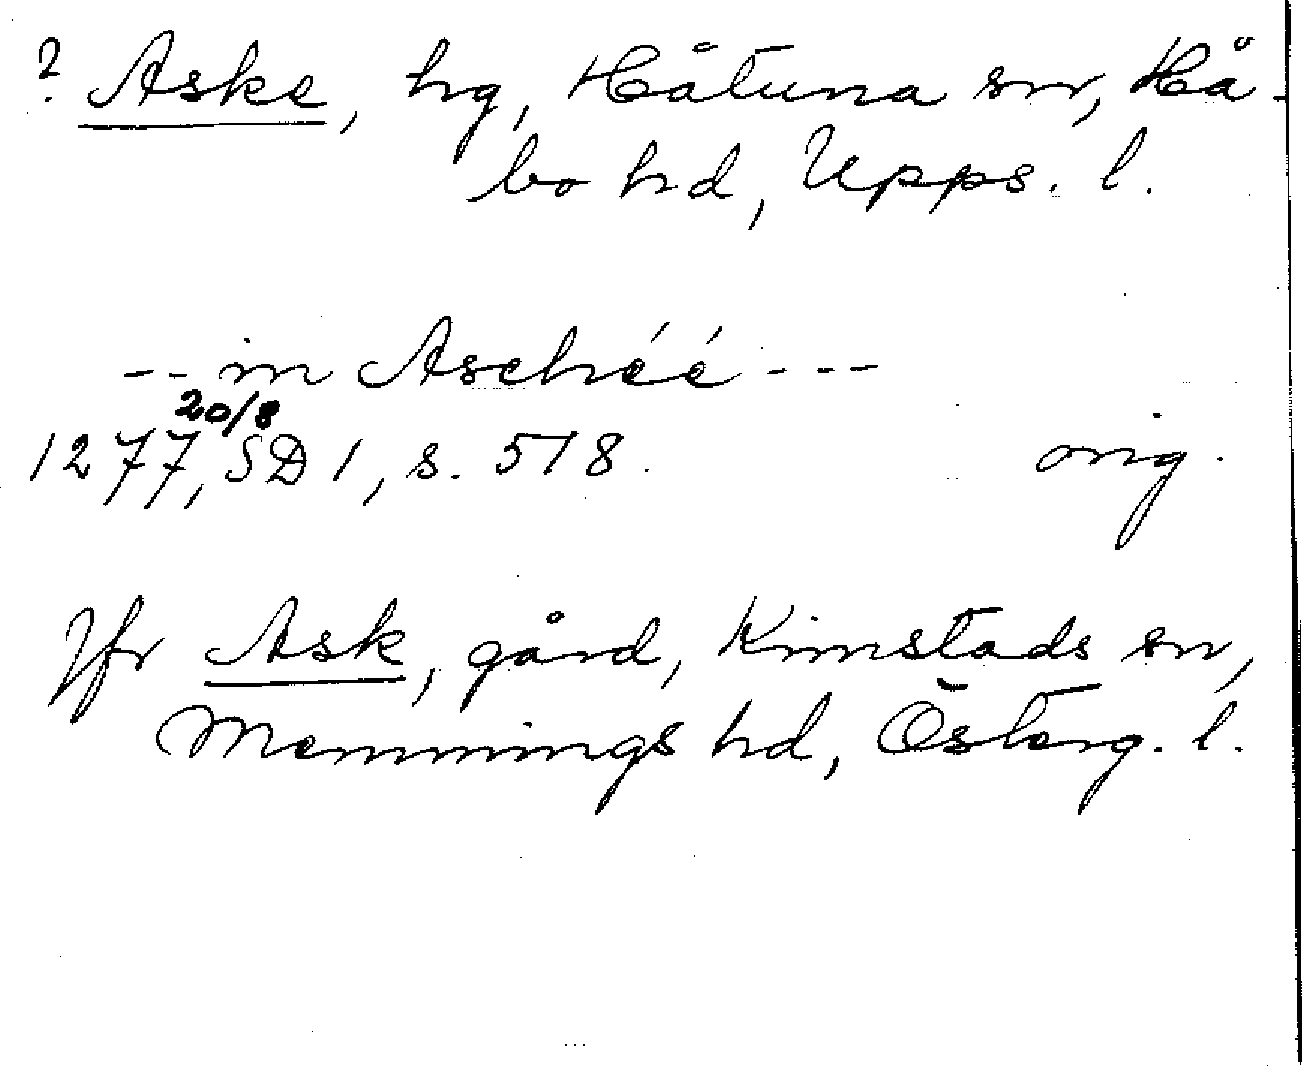 ? Aske, hg, Håtuna sn, Hå-
bo hd, Upps. l.
-- in Aschéé ---
20/8
1277, SD 1, s. 518. orig.
Jfr Ask, gård, Kimstads sn,
Memmings hd, Österg. l.